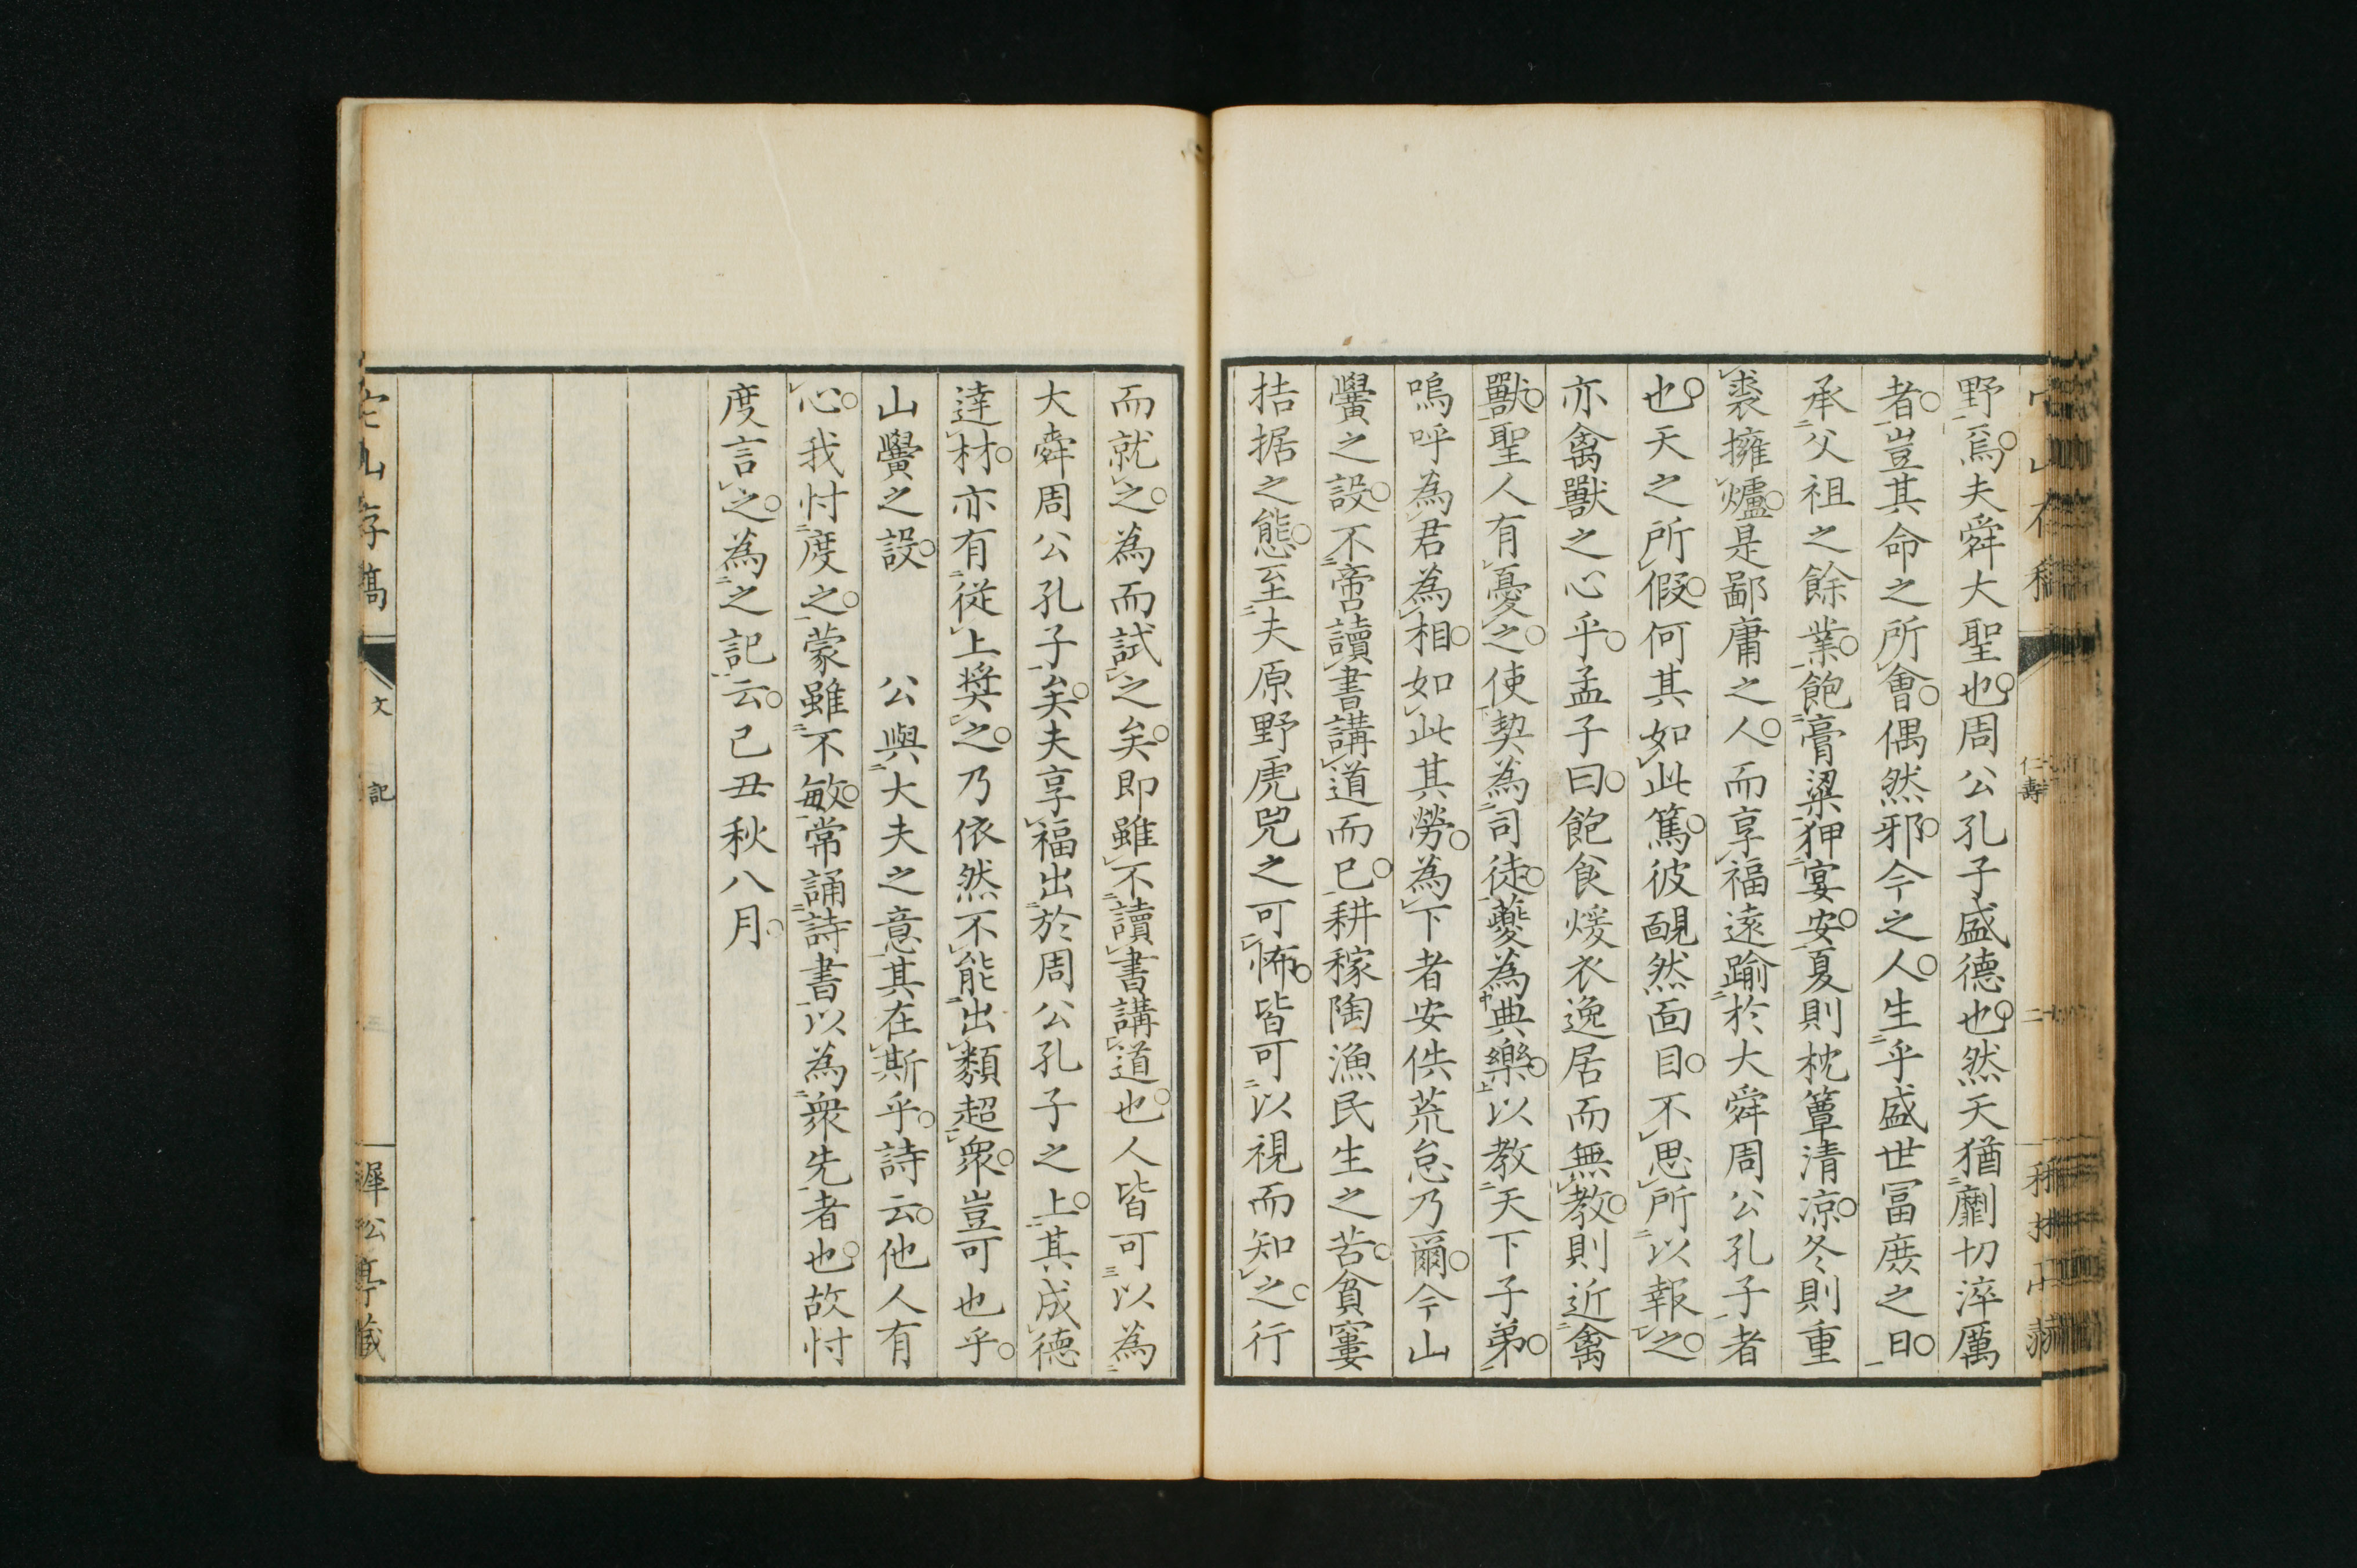 野焉夫舜大聖也周公孔子盛德也然天猶劘切淬厲
者豈其命之所會偶然邪今之人生乎盛世冨庶之日
承父祖之餘業飽膏粱狎宴安夏則枕簟清凉冬則重
裘擁爐是鄙庸之人而享福遠踰於大舜周公孔子者
也天之所假何其如此篤彼靦然面目不思所以報之
亦禽獸之心乎孟子曰飽食煖衣逸居而無教則近禽
獸聖人有憂之使契為司徒夔為典樂以教天下子弟
嗚呼為君為相如此其勞為下者安佚荒怠乃爾今山
黌之設不啻讀書講道而已耕稼陶漁民生之苦貧窶
拮据之態至夫原野虎兕之可怖皆可以視而知之行
而就之為而試之矣即雖不讀書講道也人皆可以為
大舜周公孔子矣夫享福出於周公孔子之上其成德
達材亦有從上奬之乃依然不能出類超衆豈可也乎
山黌之設　公與大夫之意其在斯乎詩云他人有
心我忖度之蒙雖不敏常誦詩書以為衆先者也故忖
度言之為之記云己丑秋八月
宕山存稿
文
記
三
遲松亭藏